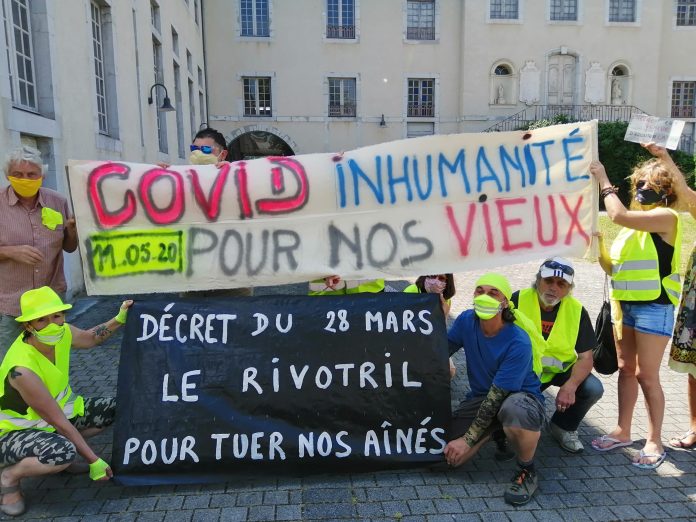 COVID INHUMANITÉ
11.05.20 POUR NOS VIEUX
DÉCRET DU 28 MARS
LE RIVOTRIL
POUR TUER NOS AÎNÉS